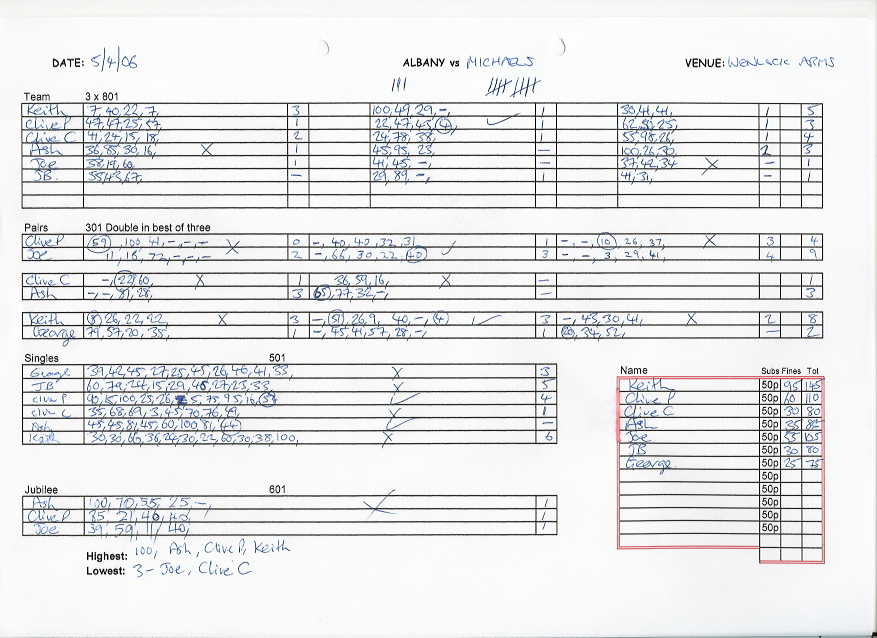 DATE: 5/4/06 ALBANY vs MICHAELS VENUE: WENLOCK ARMS
Team 3 x 801
Keith 7, 40, 22, 7, 3 100, 49, 29, -, 1 30, 41, 41, 1 5
Clive P 47, 47, 25, 57, 1 22, 47, 45, 4, 1 1 3
Clive C 41, 24, 15, 18, 2 24, 78, 38, 1 55, 98, 26, 1 4
Ash 36, 85, 30, 16, X 1 45, 95, 23, - 100, 26, 30, 2 3
Joe 58, 19, 60, 1 41, 45, -, - 37, 42, 34 X - 1
JB. 55, 43, 67, - 29, 89, -, 1 41, 31, - 1
Pairs 301 Double in best of three
Clive P 59, 100, 41, -, -, - X 0 -, 40, 40, 32, 31 1 -, -, 10, 26, 37, X 3 4
Joe 11, 16, 72, -, -, - 2 -, 66, 30, 22, 40 3 -, -, 3, 29, 41, 4 9
Clive C -, 22, 60, X 1 36, 59, 16, X - 1
Ash -, -, 81, 28, 3 65, 77, 32, -, - 3
Keith 8, 26, 22, 22, X 3 -, 51, 26, 9, 40, -, 4, 3 -, 43, 30, 41, X 2 8
George 79, 57, 20, 35, 1 -, 45, 41, 57, 28, -, 1 20, 34, 52, - 2
Singles 501
George 39, 42, 45, 27, 25, 45, 26, 46, 41, 33, X 3
JB 60, 79, 24, 15, 29, 46, 27, 23, 33, X 5
Clive P 40, 15, 100, 25, 26, 5, 75, 95, 16, 4
Clive C 35, 68, 69, 3, 45, 70, 76, 49, X 1
Ash 45, 45, 81, 45, 60, 100, 81, 44 -
Keith 30, 30, 60, 36, 24, 30, 22, 60, 30, 38, 100, X 6
Name Subs Fines Tot
Keith 50p 95 145
Clive P 50p 60 110
Clive C 50p 30 80
Ash 50p 35 85
Joe 50p 55 105
JB 50p 30 80
George 50p 25 75
50p
50p
50p
50p
50p
Jubilee 601
Ash 100, 70, 55, 25, -, X 1
Clive P 85, 21, 46, 1
Joe 39, 59, 11, 40, 1
Highest: 100, Ash, Clive P, Keith
Lowest: 3 - Joe, Clive C